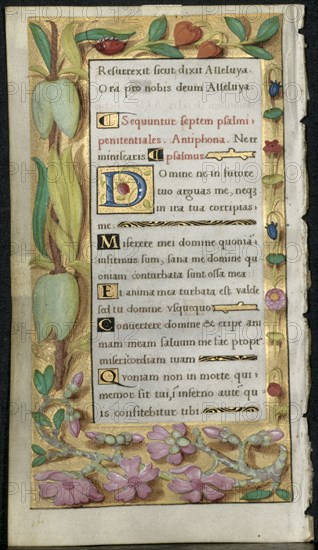 Resurrexit sicut dixit Alleluya
Ora pro nobis deum Alleluya
Sequuntur septem psalmi
penitentiales. Antiphona. Nere
miniscaris psalmus
Domine ne in furore
tuo arguas me, neqz
in ira tua corripias
me.
Miserere mei domine quoniã
infirmus sum, sana me domine qu
oniam conturbata sunt ossa mea
Et anima mea turbata est valde
sed tu domine vsquequo
Convertere domine & eripe ani
mam meam salvum me fac propt
misericordiam tuam
Quoniam non in morte qui
memor sit tui, ĩ inferno autẽ qu
is confitebitur tibi